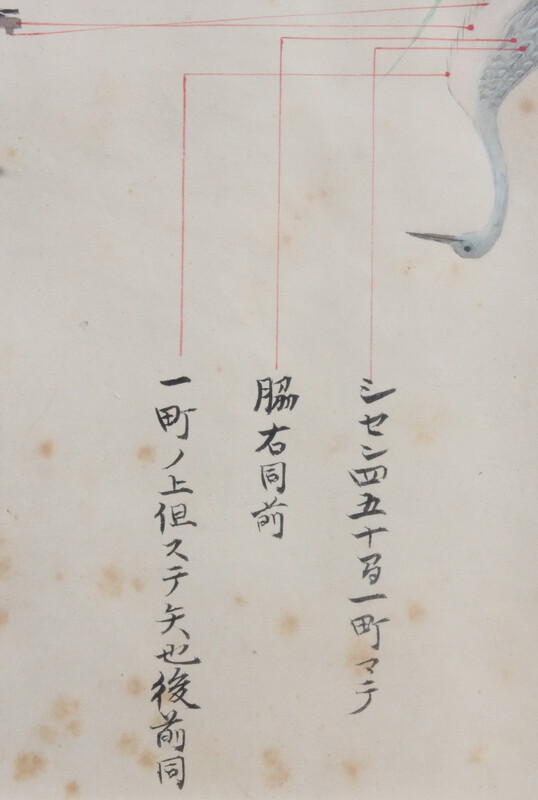 シセン四五十間一町マテ
脇右同前
一町ノ上但ステ矢也後前同